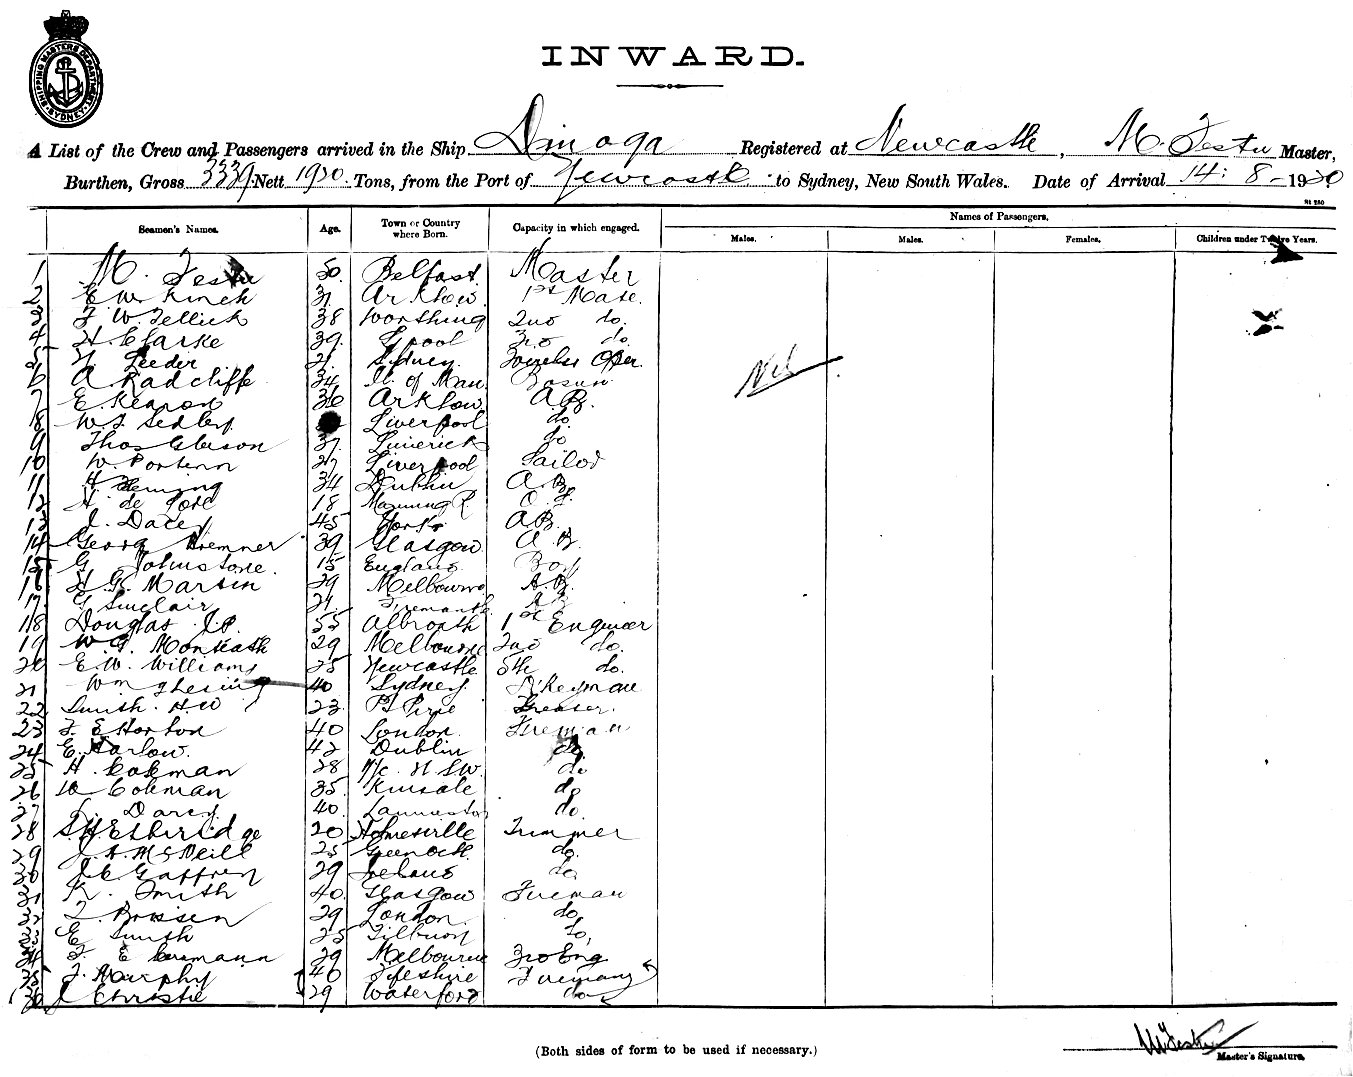 SHIPPING MASTERS DEPARTMENT SYDNEY
INWARD.
A List of the Crew and Passengers arrived in the Ship Dinoga Registered at Newcastle, M. Master,
Burthen, Gross 3339 Nett 1920 Tons, from the Port of Newcastle to Sydney, New South Wales. Date of Arrival 14: 8 - 1920
Seamen's Names. Age. Town or Country where Born. Capacity in which engaged. Names of Passengers.
Males. Males. Females. Children under Twelve Years.
1 M. 50 Belfast Master
2 E W Kinch 31 Arklow 1st Mate.
3 F W Tellick 38 Worthing 2nd do.
4 H Clarke 39 L'pool 3rd do.
5 Leeder 21 Sydney Wireless Oper.
6 A Radcliffe 34 Il. of Man Bosun
7 E. Kearon 36 Arklow A.B.
8 W. J. Sedley Liverpool do
9 Thos Gleeson 37 Limerick do
10 W. 27 Liverpool Sailor
11 H Fleming 34 Dublin A.B.
12 H. de 18 Manning R. O.S.
13 J. Dacey 45 A.B.
14 George Bremner 39 Glasgow A B.
15 G Johnstone. 15 England Boy
16 H G. Martin 29 Melbourne A.B.
17 G Sinclair 21 Fremantle A.B.
18 Douglas J.P. 55 Albroath 1st Engineer
19 W G. Monteath 29 Melbourne 2nd do.
20 E. W. Williams 25 Newcastle 5th do.
21 Wm 40 Sydney D'Keyman
22 Smith. H W 23 Pt Pirie Greaser.
23 F. E Horton 40 London. Fireman
24 E Harlow. 42 Dublin do
25 H. Cokman 28 N/c. N S W. do
26 W Coleman 35 Kinsale do
27 Darcy 40 do.
28 S. H. Etheridge 20 Holmesville Trimmer
29 J. A. McNeill 25 Greenock do.
30 J C Gaffney 29 Ireland do
31 K. Smith 40 Glasgow Fireman
32 29 London do
33 E Smith 25 Tilbury do,
34 F E 29 Melbourne 3rd Eng
35 J. Murphy 40 Fifeshire Fireman
36 J Christie 29 Waterford do
Nil
(Both sides of form to be used if necessary.)
Master's Signature.